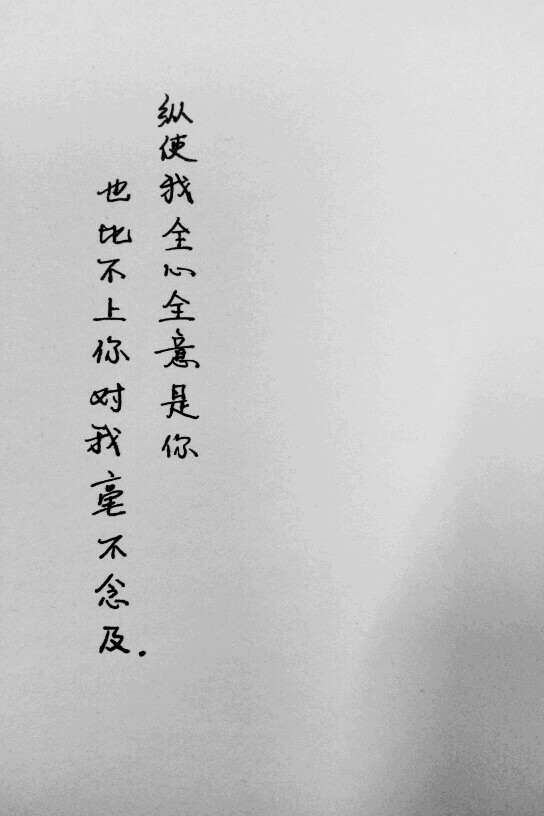 纵使我全心全意是你
也比不上你对我毫不念及.